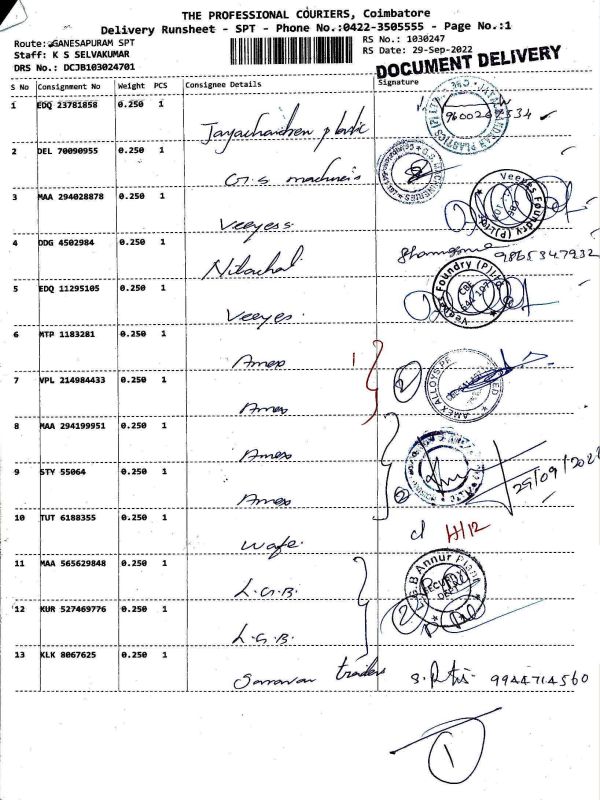 THE PROFESSIONAL COURIERS, Coimbatore
Delivery Runsheet - SPT - Phone No.:0422-3505555 - Page No.:1
Route: GANESAPURAM SPT
RS No.: 1030247
Staff: K S SELVAKUMAR
RS Date: 29-Sep-2022
DRS No.: DCJB103024701
DOCUMENT DELIVERY
S No Consignment No Weight PCS Consignee Details Signature
1 EDQ 23781858 0.250 1
Jayachandran plastic
9600267534
2 DEL 70090955 0.250 1
G.S machineris
3 MAA 294028878 0.250 1
Veeyes
Veepes Foundry (P)Ltd
4 DDG 4502984 0.250 1
Nilachal
9865347932
5 EDQ 11295105 0.250 1
Veeyes
Veepes Foundry (P)Ltd
6 MTP 1183281 0.250 1
Amex
1
7 VPL 214984433 0.250 1
Amex
2
AMEX ALLOYS
8 MAA 294199951 0.250 1
Amex
9 STY 55064 0.250 1
Amex
2
29/09/2022
10 TUT 6188355 0.250 1
Wafe
cl H/12
11 MAA 565629848 0.250 1
L.G.B.
Annur Plant
SECURITY DEPT
12 KUR 527469776 0.250 1
L.G.B.
2
13 KLK 8067625 0.250 1
Saravan traders
9944714560
1